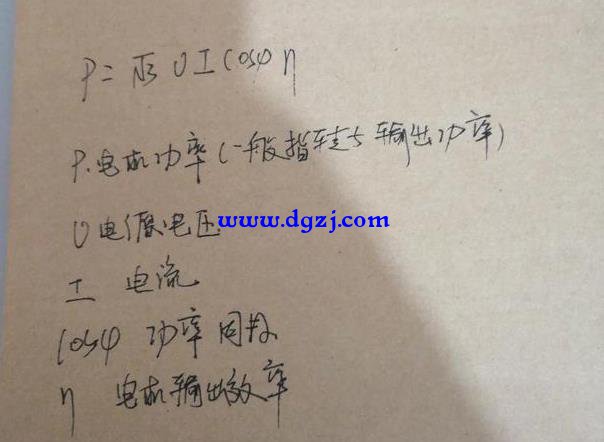 P = √3 U I cosφ η
P. 电机功率(一般指转轴输出功率)
U 电源电压
www.dgzj.com
I 电流
cosφ 功率因数
η 电机输出效率